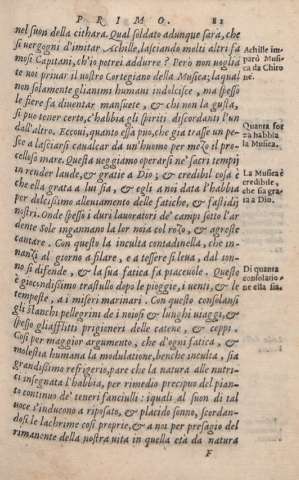 PRIMO. 81
nel suon della cithara. Qual soldato adunque sarà, che
si uergogni d'imitar Achille, lasciando molti altri fa
mosi Capitani, ch'io potrei addurre? Però non uoglia
te uoi priuar il nostro Cortegiano della Musica; laqual
non solamente gli animi humani indolcisce, ma spesso
le fiere fa diuentar mansuete, & chi non la gusta,
si può tener certo, c'habbia gli spiriti discordanti l'un
dall'altro. Eccoui, quanto essa può, che già trasse un pe-
sce a lasciarsi caualcar da un'huomo per mezo il pro-
celloso mare. Questa ueggiamo operarsi ne' sacri tempij
in render laude, & gratie a Dio; & credibil cosa è
che ella grata a lui sia, & egli a noi data l'habbia
per dolcissimo alleuiamento delle fatiche, & fastidij
nostri. Onde spesso i duri lauoratori de' campi sotto l'ar
dente Sole ingannano la lor noia col rozo, & agreste
cantare. Con questo la inculta contadinella, che in-
nanzi al giorno a filare, e a tessere si leua, dal son-
no si difende, & la sua fatica fa piaceuole. Questo
è giocondissimo trastullo dopò le pioggie, i uenti, & le
tempeste, a i miseri marinari. Con questo consolansi
gli stanchi pellegrini de i noiosi & lunghi uiaggi, &
spesso gli afflitti prigioneri delle catene, & ceppi.
Così per maggior argumento, che d'ogni fatica, &
molestia humana la modulatione, benche inculta, sia
grandissimo refrigerio, pare che la natura alle nutri-
ci insegnata l'habbia, per rimedio precipuo del pian-
to continuo de' teneri fanciulli: iquali al suon di tal
uoce s'inducono a riposato, & placido sonno, scordan-
dosi le lachrime così proprie, & a noi per presagio del
rimanente della nostra uita in quella età da natura
F
Achille im
parò Musi
ca da Chiro
ne.
Quanta for
za habbia
la Musica.
La Musica è
credibile,
che sia gra-
ta a Dio.
Di quanta
consolatio-
ne ella sia.